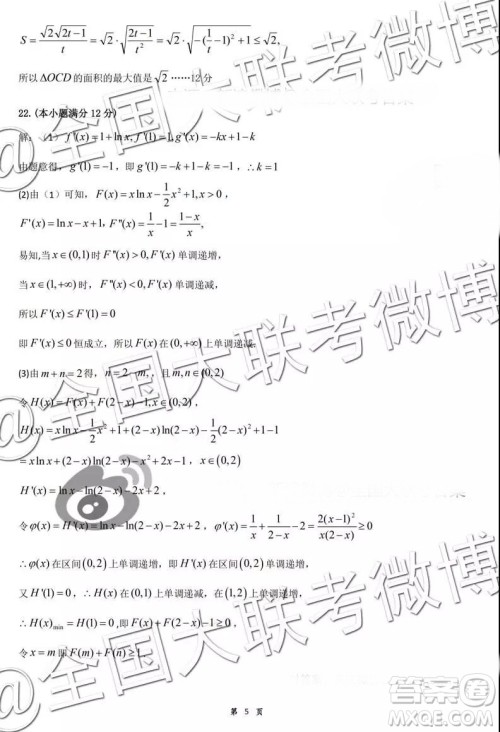 S = √2√(2t−1)/t = √2·√((2t−1)/t²) = √2·√(−(1/t−1)²+1) ≤ √2,
所以 ΔOCD 的面积的最大值是 √2 ……12分
22.(本小题满分 12 分)
解:(1) f'(x)=1+ln x, f'(1)=1, g'(x)=−kx+1−k
由题意得, g'(1)=−1, 即 g'(1)=−k+1−k=−1, ∴k=1
(2)由(1)可知, F(x)=x ln x−1/2x²+1, x>0,
F'(x)=ln x−x+1, F''(x)=1/x−1=(1−x)/x
易知,当 x∈(0,1)时 F''(x)>0, F'(x) 单调递增,
当 x∈(1,+∞)时, F''(x)<0, F'(x) 单调递减,
所以 F'(x)≤F'(1)=0
即 F'(x)≤0恒成立, 所以 F(x) 在(0,+∞)上单调递减。
(3)由 m+n=2得, n=2−m, 且 m,n∈(0,2)
令 H(x)=F(x)+F(2−x)−1, x∈(0,2),
H(x)=x ln x−1/2x²+1+(2−x)ln(2−x)−1/2(2−x)²+1−1
=x ln x+(2−x)ln(2−x)−x²+2x−1, x∈(0,2)
H'(x)=ln x−ln(2−x)−2x+2,
令 φ(x)=H'(x)=ln x−ln(2−x)−2x+2, φ'(x)=1/x+1/(2−x)−2=2(x−1)²/(x(2−x))≥0
∴φ(x) 在区间(0,2)上单调递增, 即 H'(x) 在区间(0,2)上单调递增,
又 H'(1)=0, ∴H(x) 在(0,1)上单调递减, 在(1,2)上单调递增,
∴H(x)min=H(1)=0 ,即 F(x)+F(2−x)≥1, x∈(0,2),
令 x=m 即 F(m)+F(n)≥1.
第 5 页
@全国大联考微博
@全国大联考微博
@全国大联考微博
答案圈
MXQE.COM